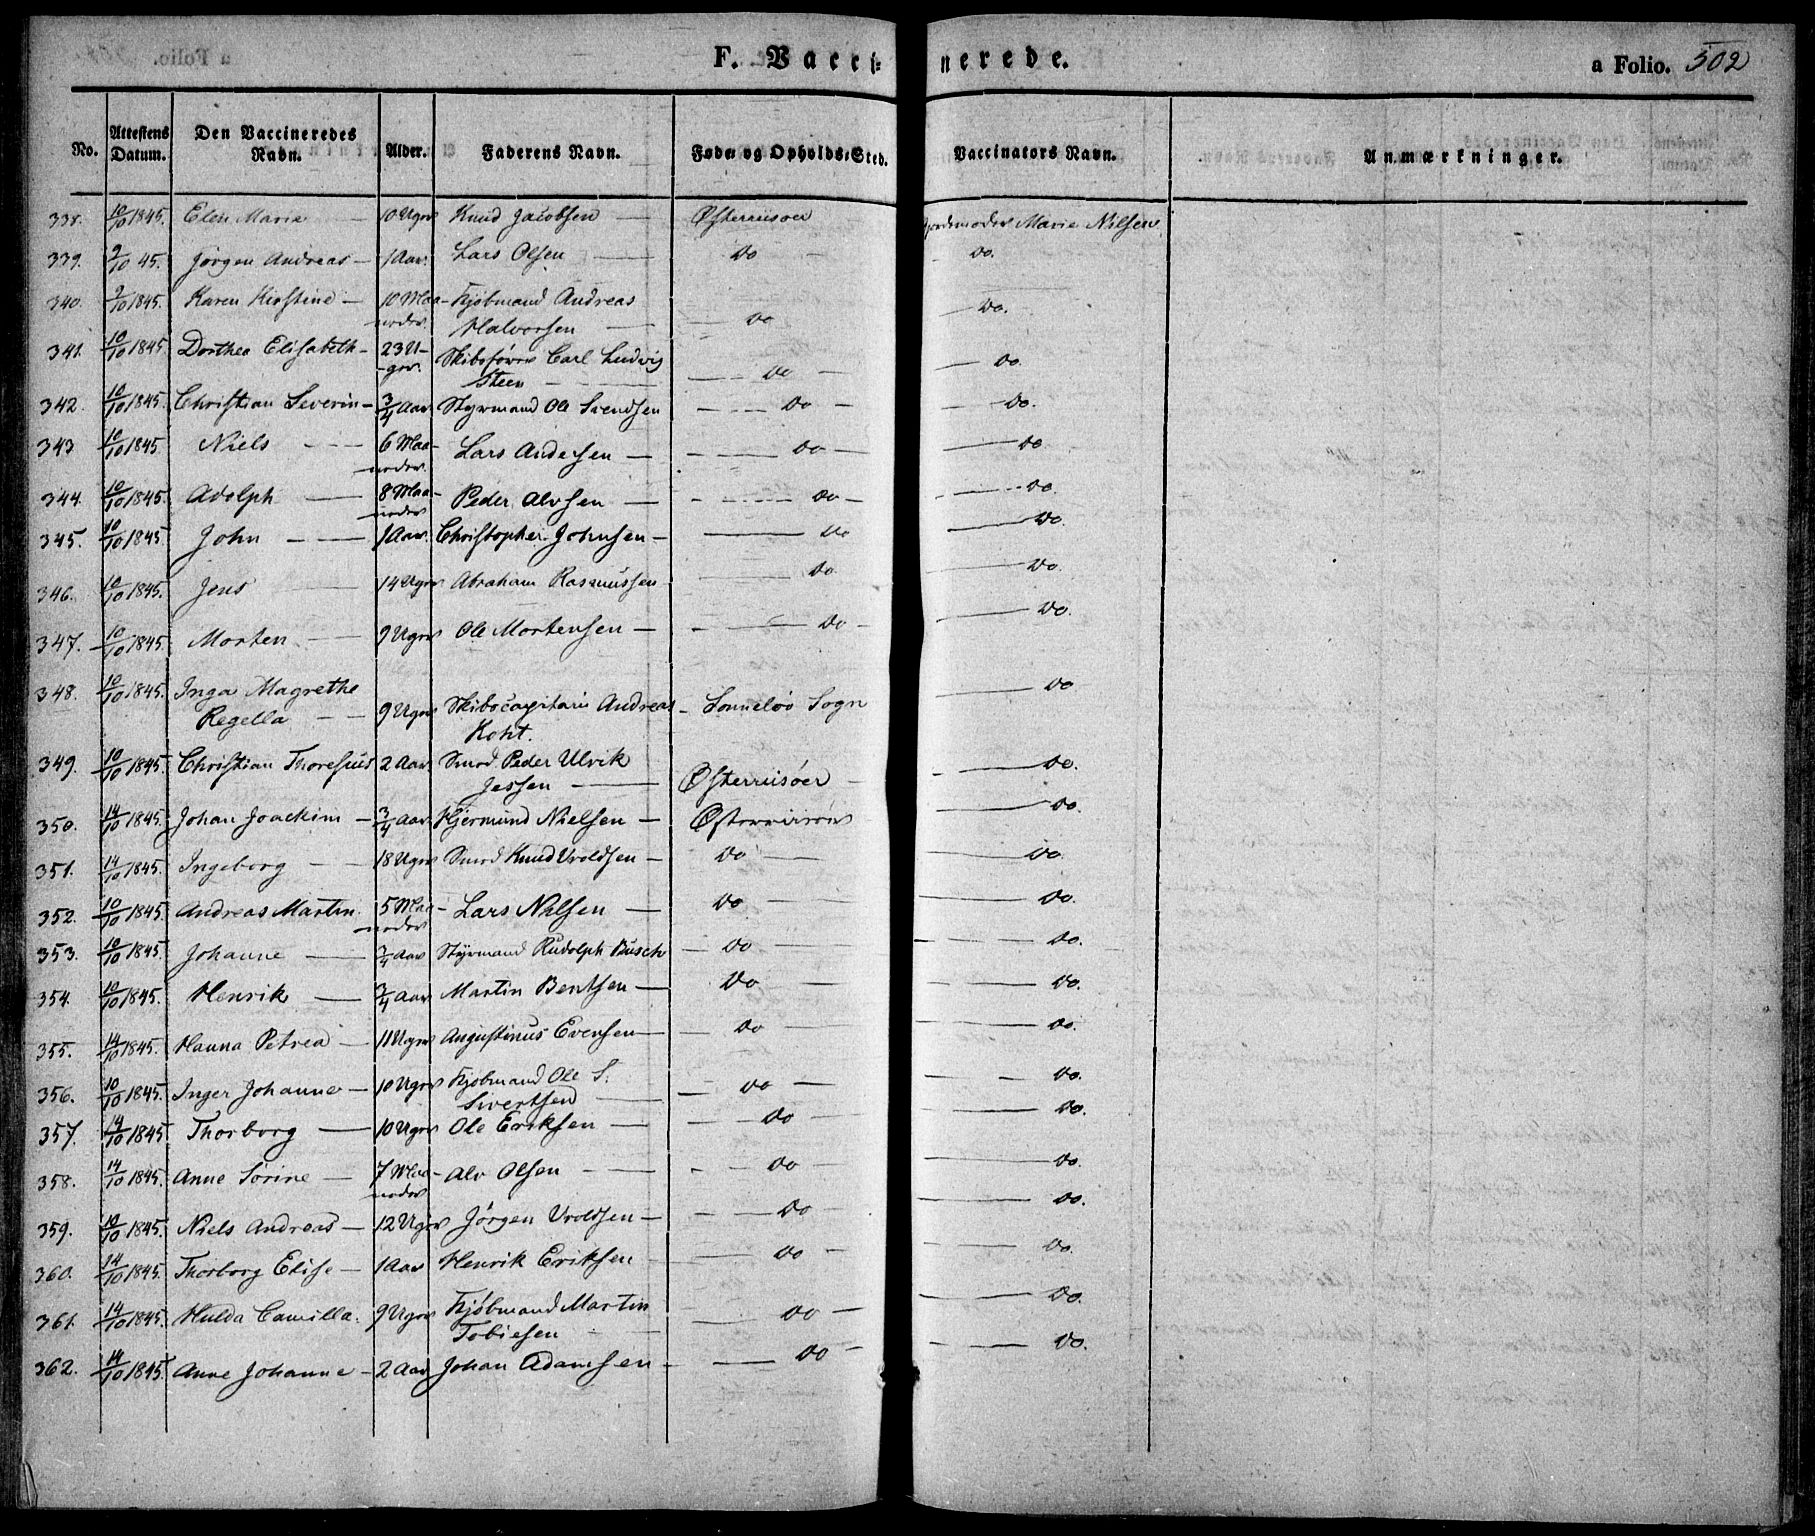 F. Vacci= nerede. a Folio. 502
No. Attestens Datum. Den Vaccineredes Navn. Alder. Faderens Navn. Føde= og Opholds=Sted. Vaccinators Navn. Anmærkninger.
338. 10/10 1845. Elen Marie — 10 Uger Knud Jacobsen — Østerrisøer Jordemoder Marie Nilsen
339. 9/10 45. Jørgen Andreas — 1 Aar. Lars Olsen — Do — Do.
340. 9/10 1845. Karen Kirstine — 10 Maa- Kjøbmand Andreas
neder. Halvorsen — Do — Do.
341. 10/10 1845 Dorthea Elisabeth - 23 U- Skibsfører Carl Ludvig
-ger. Steen — Do — Do.
342. 10/10 1845. Christian Severin - 3/4 Aar Styrmand Ole Svendsen — Do — Do.
343 10/10 1845 Niels — 6 Maa- Lars Andersen — Do — Do
neder.
344. 10/10 1845. Adolph — 8 Maa- Peder Alvsen — Do — Do.
neder
345. 10/10 1845 John — 1 Aar. Christopher Johnsen — Do — Do.
346. 10/10 1845. Jens 14 Uger Abraham Rasmussen — Do — Do.
347. 10/10 1845. Morten — 9 Uger Ole Mortensen — Do — Do.
348. 10/10 1845. Inga Magrethe
Regella — 9 Uger Skibscapitain Andreas - Sønneløv Sogn — Do
Koht.
349. 10/10 1845. Christian Thoresius 2 Aar. Smed Peder Ulrik
Jessen — Østerriisøer — Do.
350. 14/10 1845. Johan Joackim — 3/4 Aar Hjermund Nielsen — Østerriisøer — Do.
351. 14/10 1845. Ingeborg — 18 Uger Smed Knud Vroldsen — Do — Do.
352. 10/10 1845 Andreas Martin. 5 Maa- Lars Nilsen — Do — Do.
neder
353. 10/10 1845. Johanne — 3/4 Aar Styrmand Rudolph Busch — Do — Do.
354. 10/10 1845. Henrik — 3/4 Aar Martin Bentsen — Do — Do.
355. 14/10 1845. Hanna Petrea — 11 Uger Augustinus Evensen — Do — Do.
356. 10/10 1845. Inger Johanne — 10 Uger Kjøbmand Ole S.
Sivertsen — Do — Do.
357. 14/10 1845 Thorborg — 10 Uger Ole Eriksen — Do — Do.
358. 14/10 1845. Anne Sørine — 7 Maa- Alv Olsen — Do — Do.
neder
359. 10/10 1845. Niels Andreas — 12 Uger Jørgen Vroldsen — Do — Do.
360. 14/10 1845. Thorborg Elise — 1 Aar Henrik Eriksen — Do — Do.
361. 14/10 1845. Hulda Camilla. 9 Uger Kjøbmand Martin
Tobiesen — Do — Do.
362. 14/10 1845. Anne Johanne - 2 Aar Johan Adamsen — Do — Do.